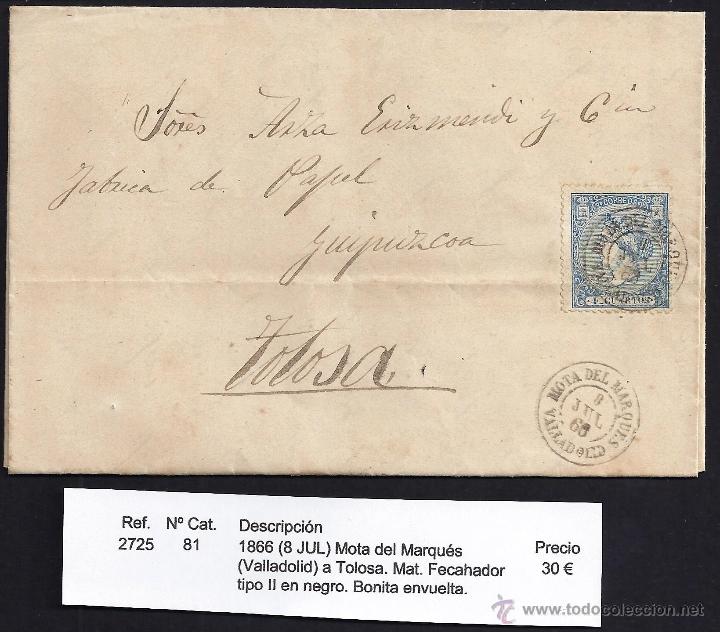 Sőres Arza Erizmendi y Cía
Fabrica de Papel
Guipuzcoa
Tolosa
CORREOS
4 CUARTOS
MOTA DEL MARQUES
8
JUL
66
VALLADOLID
Ref. Nº Cat. Descripción
2725 81 1866 (8 JUL) Mota del Marqués Precio
(Valladolid) a Tolosa. Mat. Fecahador 30 €
tipo II en negro. Bonita envuelta.
© www.todocoleccion.net